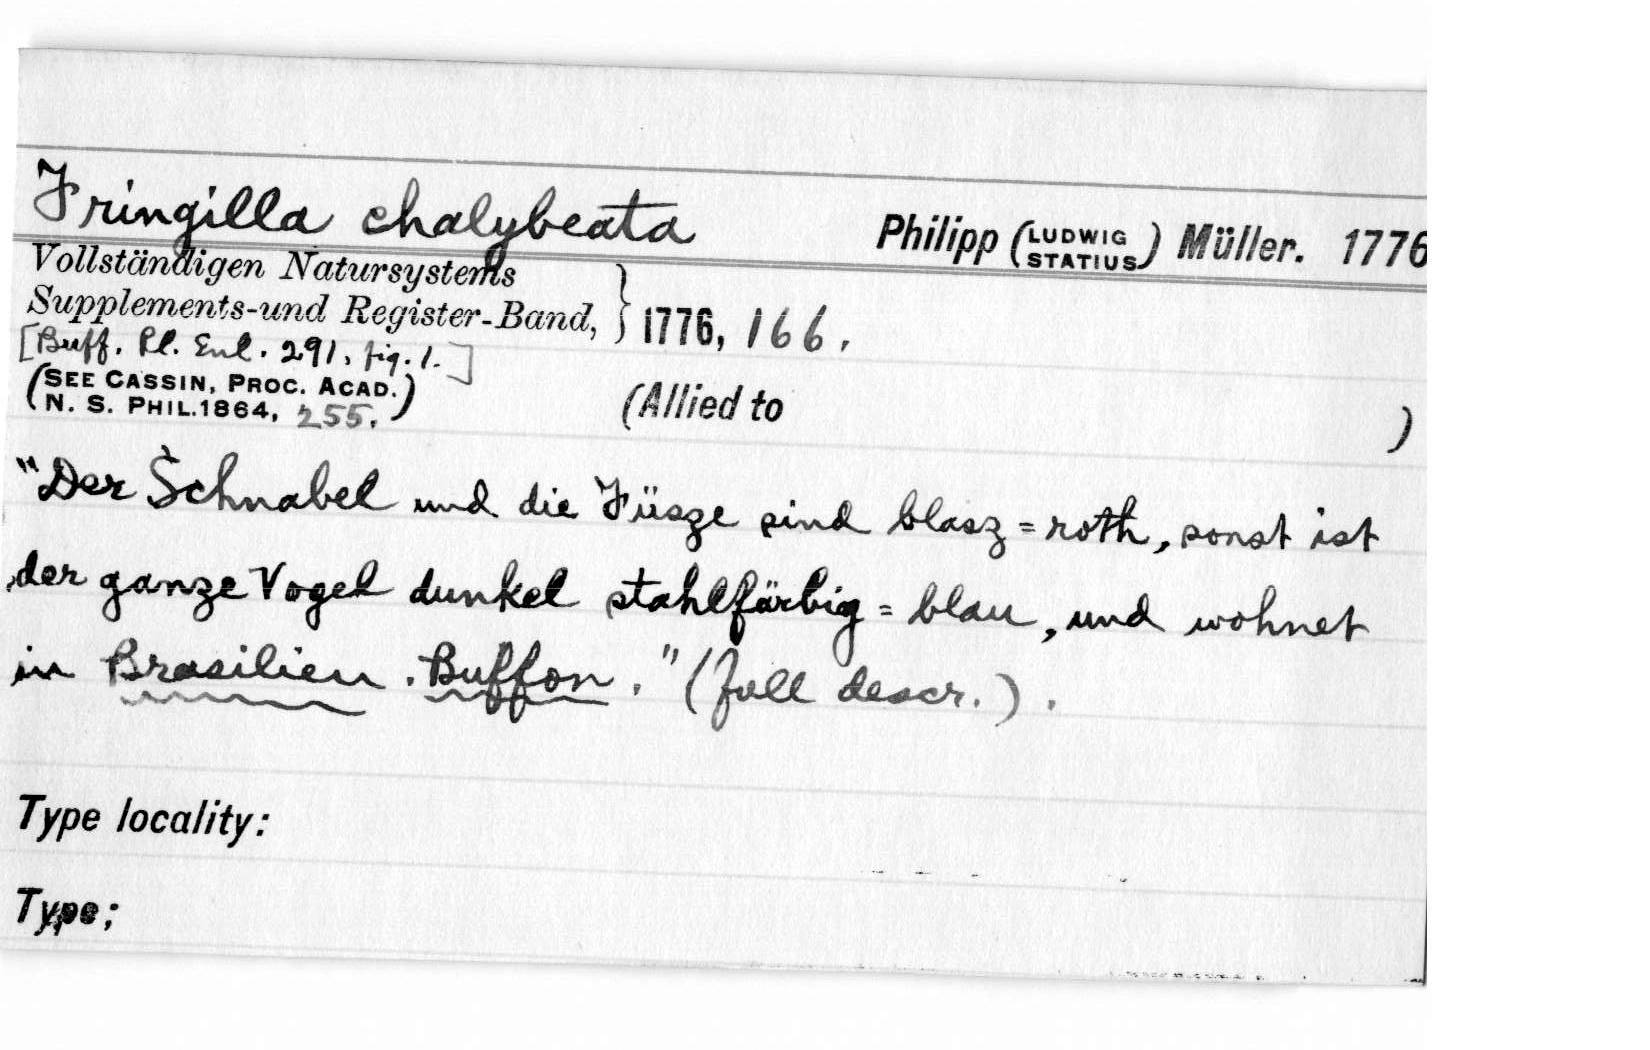 Fringilla chalybeata Philipp (LUDWIG STATIUS) Müller. 1776
Vollständigen Natursystems
Supplements-und Register-Band, } 1776, 166.
[Buff. Pl. Enl. 291, fig. 1.]
(SEE CASSIN, PROC. ACAD.
N. S. PHIL. 1864, 255.) (Allied to )
"Der Schnabel und die Füsze sind blasz = roth, sonst ist
der ganze Vogel dunkel stahlfärbig = blau, und wohnet
in Brasilien. Buffon." (full descr.).
Type locality:
Type;